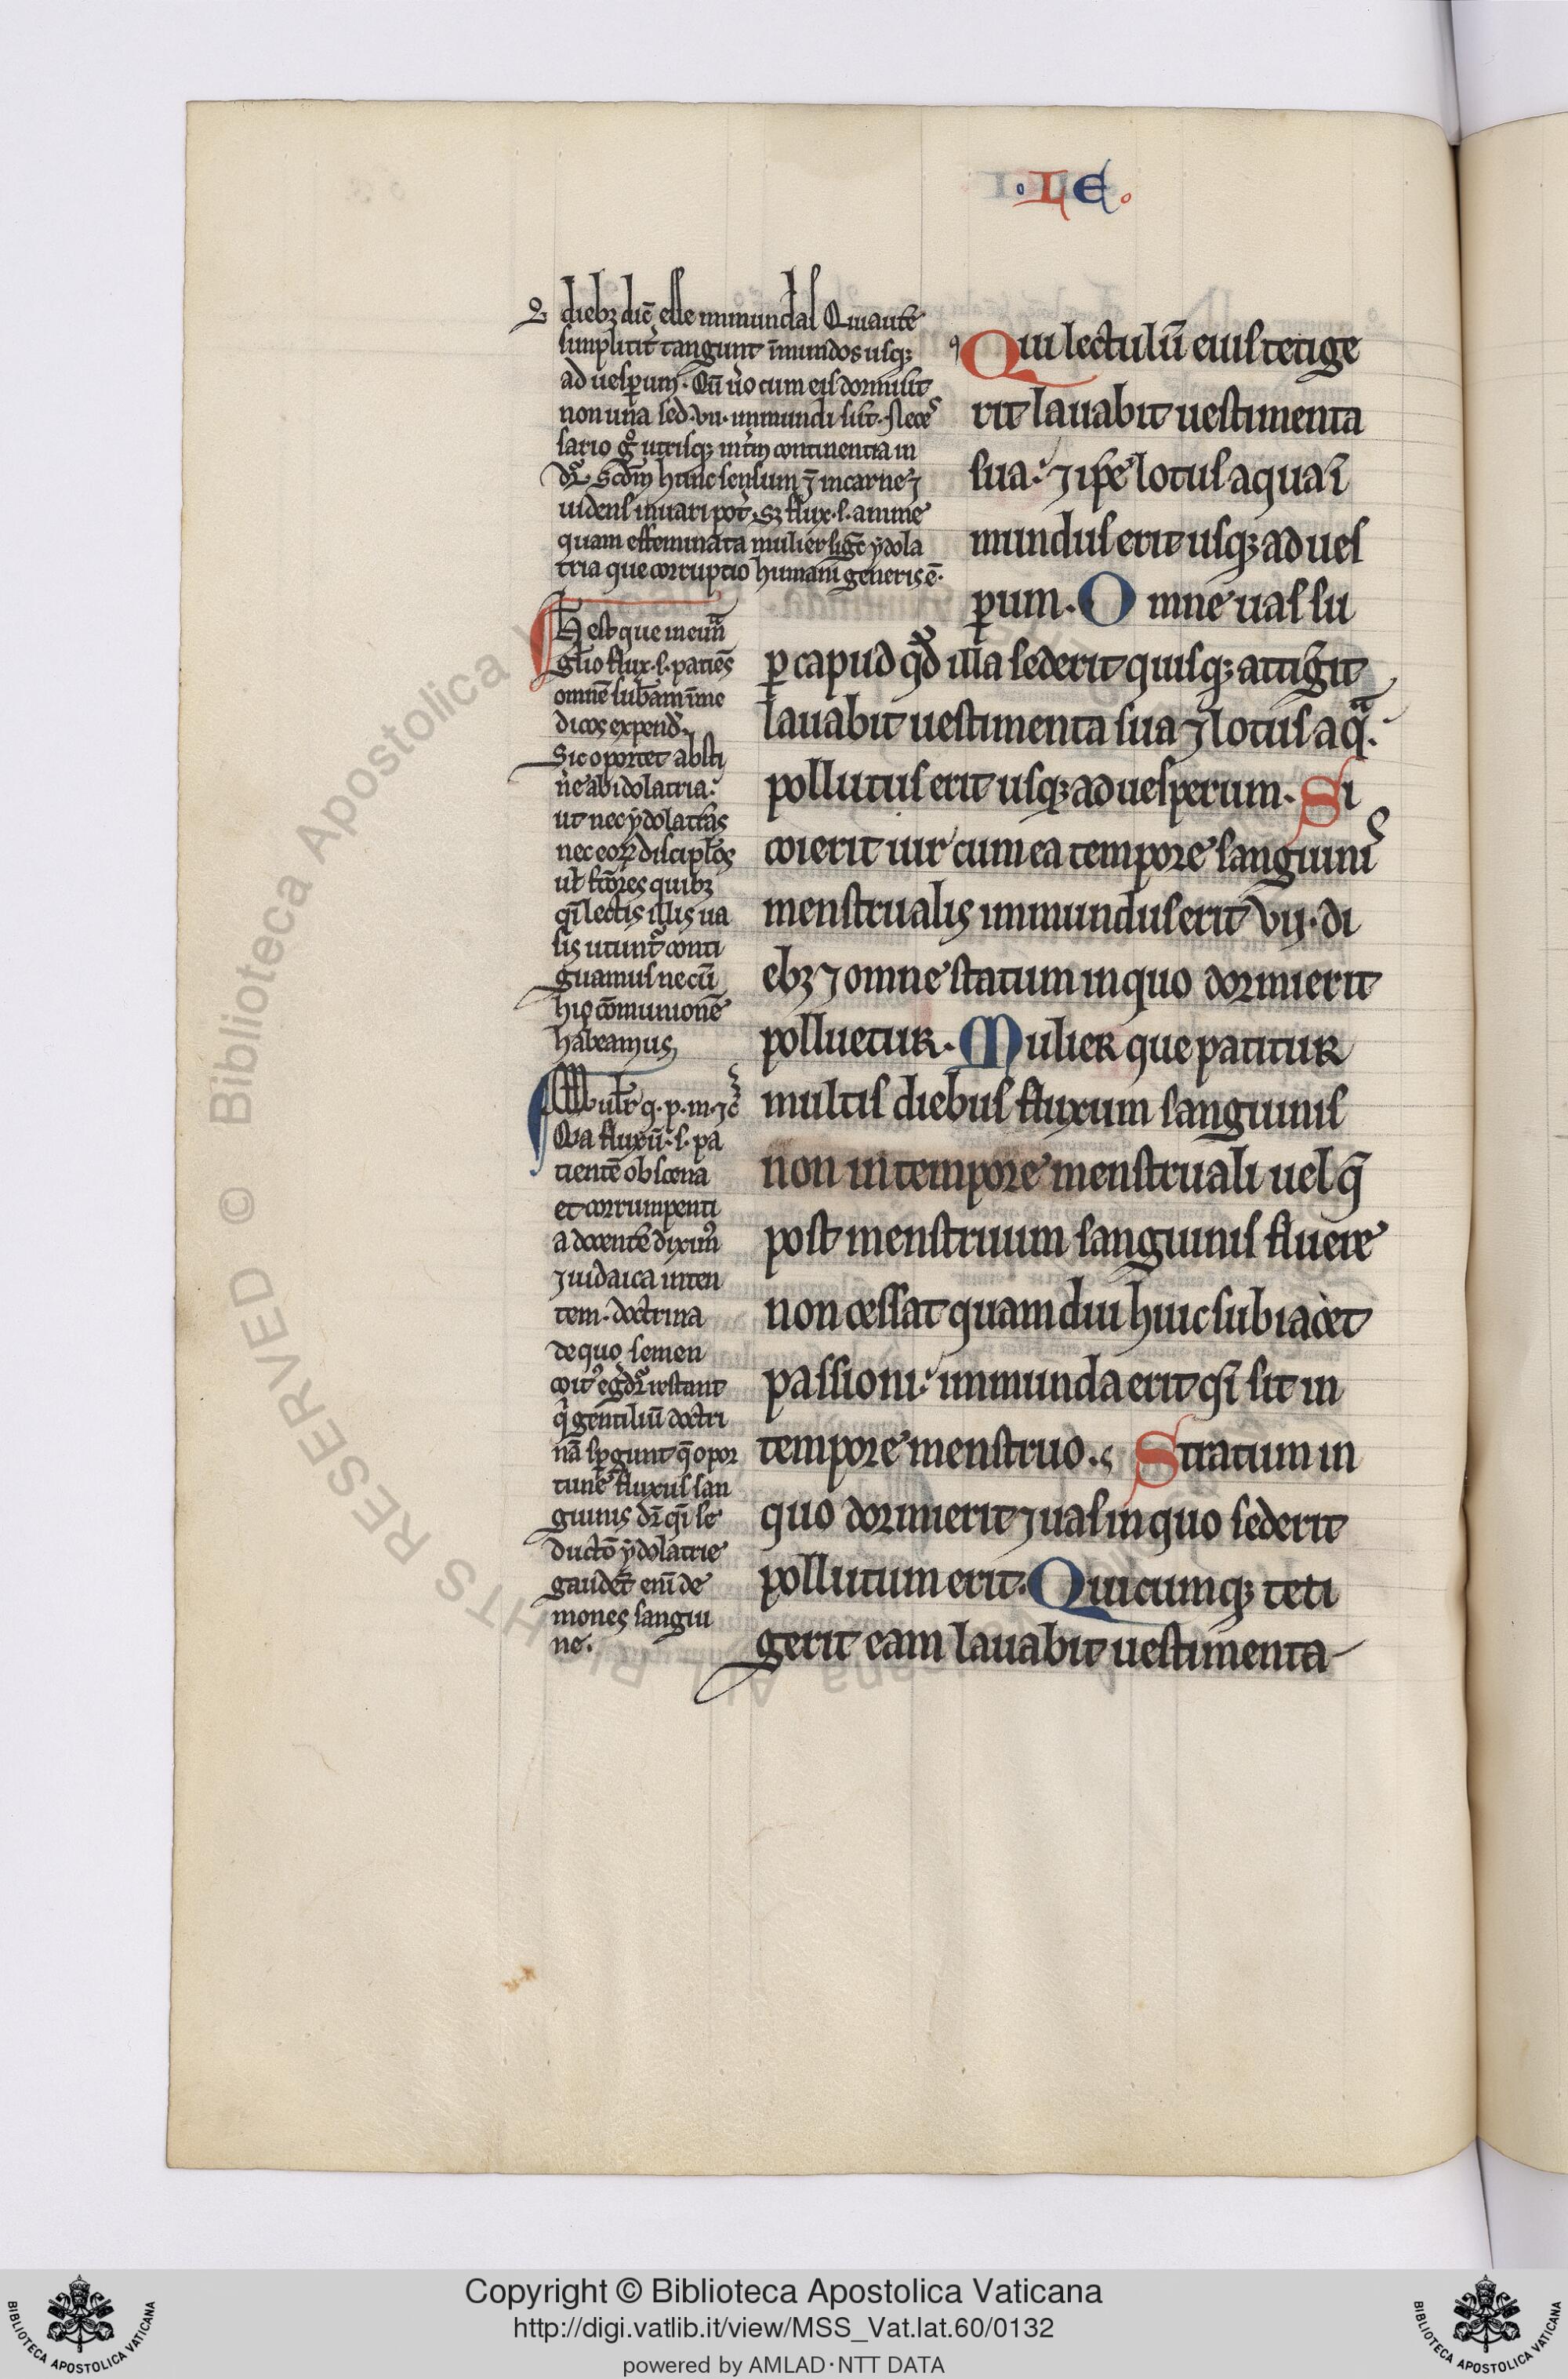 .LE.
dieb; dic̄ esse immundas Quiaut̄e
simplicit̄ tangunt īmundos usq;
ad uesꝑum. Qui ū̊o cum eis dormiūt
non una sed .vii. immundi sūt. Nece
sario gͦ utrisq; int̄im continentia in
dr̄. Scd̄m hunc sensum ⁊ in carne ⁊
uidens iuuari pot̄. S; flux. s. anime
quam effeminata mulier siḡt ydola
tria que corruptio humani generis ē.
H̄ est que in eūa
gl̄io flux. s. patiēs
omnē sub̄am ī me
dicos expend̄.
Sic oportet absti
n̄e ab idolatria:
ut nec ydolatras
nec eoꝝ discipl̄os
ul̓ fcōres quib;
q̄i lectis illis ua
sis utunt̄ conti
guamus nec cū
hiis cōmunionē
habeamus,
Mul̓r q. p. m. ⁊c̄
Qia fluxū. s. pa
tientē obscena
et corrumpenti
a docentē diximꝰ
⁊ iudaica inten
tem. doctrina
de quo semen
coit᷒ egdr̄ restant
q̓ gentiliū doctri
nā spgunt q̄ opor
tune fluxus san
guinis dr̄ q̄i se
ductō ydolatrie
gaudēt eni de
mones sangui
ne.
Qui lectulū eius tetige
rit lauabit uestimenta
sua: ⁊ ip̄e lotus aqua ī
mundus erit usq; ad ues
ꝑum. Omne uas su
ꝑ capud qd̓ illa sederit quisq; attiḡit
lauabit uestimenta sua ⁊ lotus aqͣ.
pollutus erit usq; ad uesperum. Si
coierit uir cum ea tempore sanguinis
menstrualis immundus erit vij. di
eb; ⁊ omne statum in quo dormierit
polluetur. Mulier que patitur
multis diebus fluxum sanguinis
non in tempore menstruali uel q̄
post menstruum sanguinis fluere
non cessat quamdiu huic subiacet
passioni: immunda erit q̄i sit in
tempore menstruo. Stratum in
quo dormierit ⁊ uas in quo sederit
pollutum erit. Quicumq; teti
gerit eam lauabit uestimenta
© Biblioteca Apostolica
RIGHTS RESERVED
Copyright © Biblioteca Apostolica Vaticana
http://digi.vatlib.it/view/MSS_Vat.lat.60/0132
powered by AMLAD·NTT DATA
BIBLIOTECA APOSTOLICA VATICANA
BIBLIOTECA APOSTOLICA VATICANA